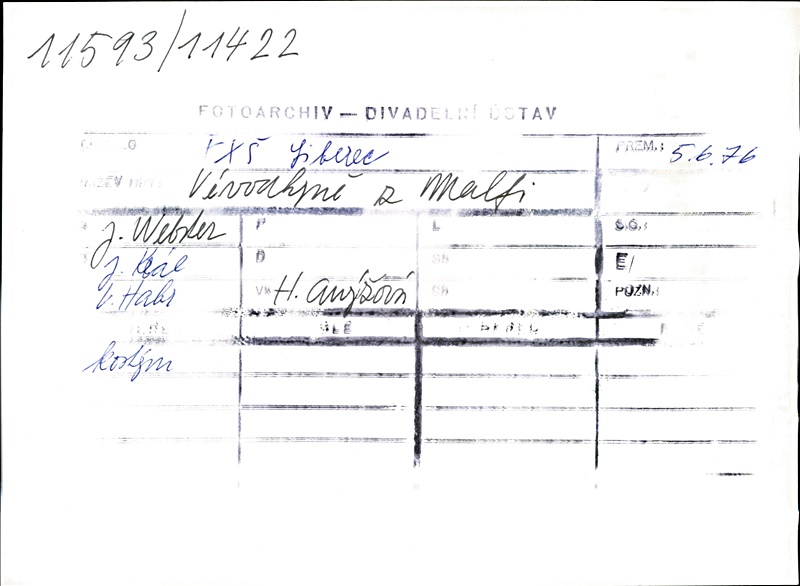 11593/11422
FOTOARCHIV — DIVADELNÍ ÚSTAV
FXŠ Liberec PREM.: 5.6.76
NÁZEV HRY Vévodkyně z Malfi
J. Webster P L S.G.:
J. Král D SB E/
V. Habr H. Anýžová SB POZN.
kostým